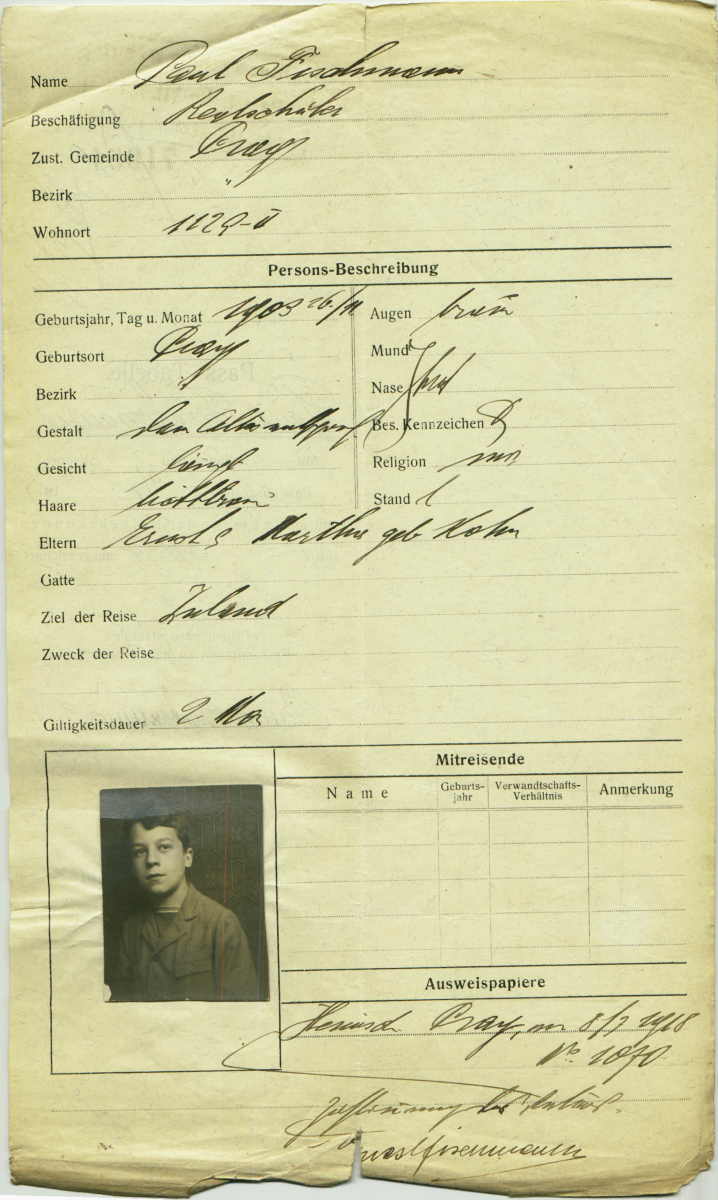 Name Paul Fischmann
Beschäftigung Realschüler
Zust. Gemeinde Prag
Bezirk "
Wohnort 1129-II
Persons-Beschreibung
Geburtsjahr, Tag u. Monat 1903 26/11
Augen braun
Geburtsort Prag
Mund
Bezirk "
Nase
Gestalt dem Alter entspr.
Bes. Kennzeichen
Gesicht längl
Religion mos
Haare lichtbraun
Stand l
Eltern Ernst & Marthe geb Kohn
Gatte
Ziel der Reise Inland
Zweck der Reise
Giltigkeitsdauer 2 Mon
Mitreisende
Name Geburts-jahr Verwandtschafts-Verhältnis Anmerkung
Ausweispapiere
Heimsch Prag, vom 8/7 1918
No 1070
Zustimmung des Vaters.